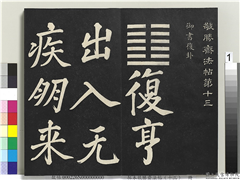 敬勝齋法帖第十三
御書復卦
復亨
出入无
疾朋来